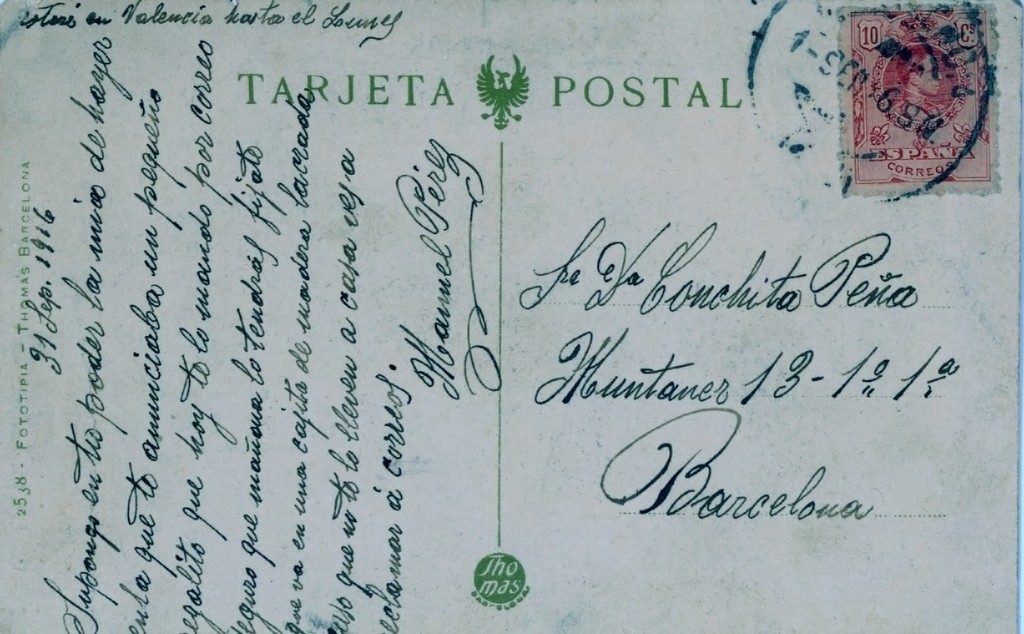 estaré en Valencia hasta el Lunes
TARJETA POSTAL
10 Cs
ESPAÑA
CORREOS
2538 - FOTOTIPIA - THOMAS BARCELONA
31 Sep. 1916
Supongo en tu poder la mia de hayer
en la que te anunciaba un pequeño
regalito que hoy te lo mando por correo
seguro que mañana lo tendrás, fijate
que va en una cajita de madera lacrada
caso que no te lo lleven a casa vega
reclamar á correos.
Manuel Pérez
Sra Da Conchita Peña
Muntaner 13 - 1º 1ª
Barcelona
Thomas
BARCELONA